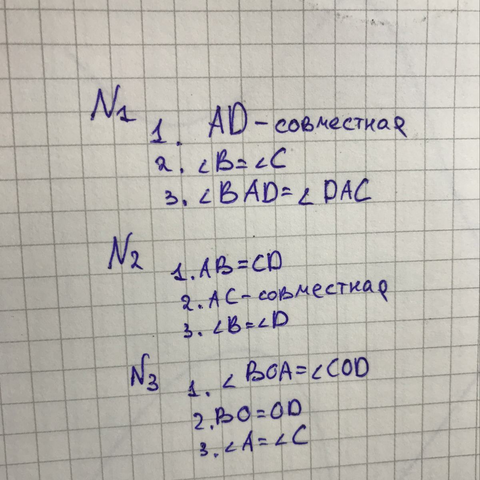 N1
1. AD - совместная
2. ∠B=∠C
3. ∠BAD=∠DAC
N2
1. AB=CD
2. AC-совместная
3. ∠B=∠D
N3
1. ∠BOA=∠COD
2. BO=OD
3. ∠A=∠C